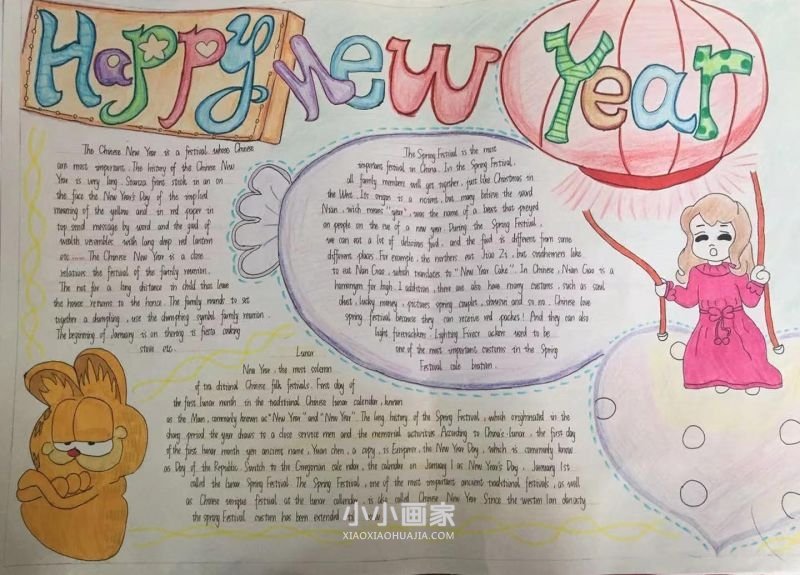 Happy New Year
The Chinese New Year is a festival whose Chinese
are most important. The history of the Chinese New
Year is very long. Stanzas first stuck in an on
the face the New Year's Day of the implied
meaning of the yellow and in red paper in
top send message by word and the god of
wealth vesembles with long deep red lantern
etc...... The Chinese New Year is a close
relatives the festival of the family reunion.
The not for a long distance in child that leave
the house returns to the house. The family mandr to set
together a dumpling, use the dumpling symbol family reunion.
The beginning of January is on thering is fiesta cooking
stove etc.
The Spring Festival is the most
important festival in China. In the Spring Festival,
all family members will get together, just like Christmas in
the West. Its origin is a ncient, but many believe the word
Nian, which means "year", was the name of a beast that preyed
on people on the eve of a new year. During the Spring Festival,
we can eat a lot of delicious food, and the food is different from some
different places. For example, the northers eat Jiao Zi, but southerners like
to eat Nian Gao, which translates to "New Year Cake". In Chinese, Nian Gao is a
homonym for high. I addition, there are also have many customs, such as send
chat, lucky money, pictures, spring couplet, shousui and so on. Chinese love
spring festival because they can receive red packes! And they can also
light firecrackers. Lighting Firecr ackers used to be
one of the most important customs in the Spring
Festival cele bration.
Lunar
New Year, the most solemn
of tra ditional Chinese folk festivals. First day of
the first lunar month in the traditional Chinese lunar calendar, known
as the Nian, commonly known as "New Year" and "New Year". The long history of the Spring Festival, which originated in the
shang period the year draws to a close service men and the memorial activities According to China's lunar, the first day
of the first lunar month yen ancient name, Yuan chen, a copy, is Emperor, the New Year Day, which is commonly know
as Day of the Republic, Switch to the Gregorian cale ndar, the calendar on January 1 as New Year's Day, January 1st
called the lunar Spring Festival. The Spring Festival, one of the most important ancient traditional festivals, as well
as Chinese unique festival at the lunar calendar, is also called Chinese New Year Since the western han danasty
the spring Festival custom has been extended to
小小画家
XIAOXIAOHUAJIA.COM